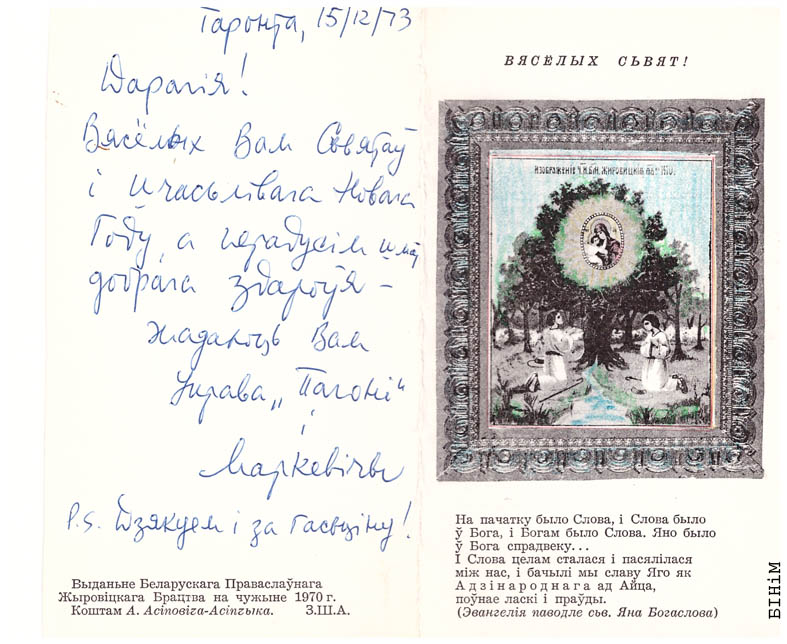 Таронта, 15/12/73
Дарагія!
Вясёлых Вам Сьвятаў
і Шчасьлівага Новага
Году, а перадусім шмат
добрага здароўя –
Жадаюць Вам
Управа „Пагоні“
і
Маркевічы
P.S. Дзякуем і за гасьціну!
Выданьне Беларускага Праваслаўнага
Жыровіцкага Брацтва на чужыне 1970 г.
Коштам А. Асіповіча-Асіпчыка. З.Ш.А.
ВЯСЁЛЫХ СЬВЯТ!
ИЗОБРАЖЕНІЕ Ч. И. Б.М. ЖИРОВИЦКІЯ
На пачатку было Слова, і Слова было
ў Бога, і Богам было Слова. Яно было
ў Бога спрадвеку...
І Слова целам сталася і пасялілася
між нас, і бачылі мы славу Яго як
Адзінароднага ад Айца,
поўнае ласкі і праўды.
(Эвангелія паводле сьв. Яна Богаслова)
БІНіМ